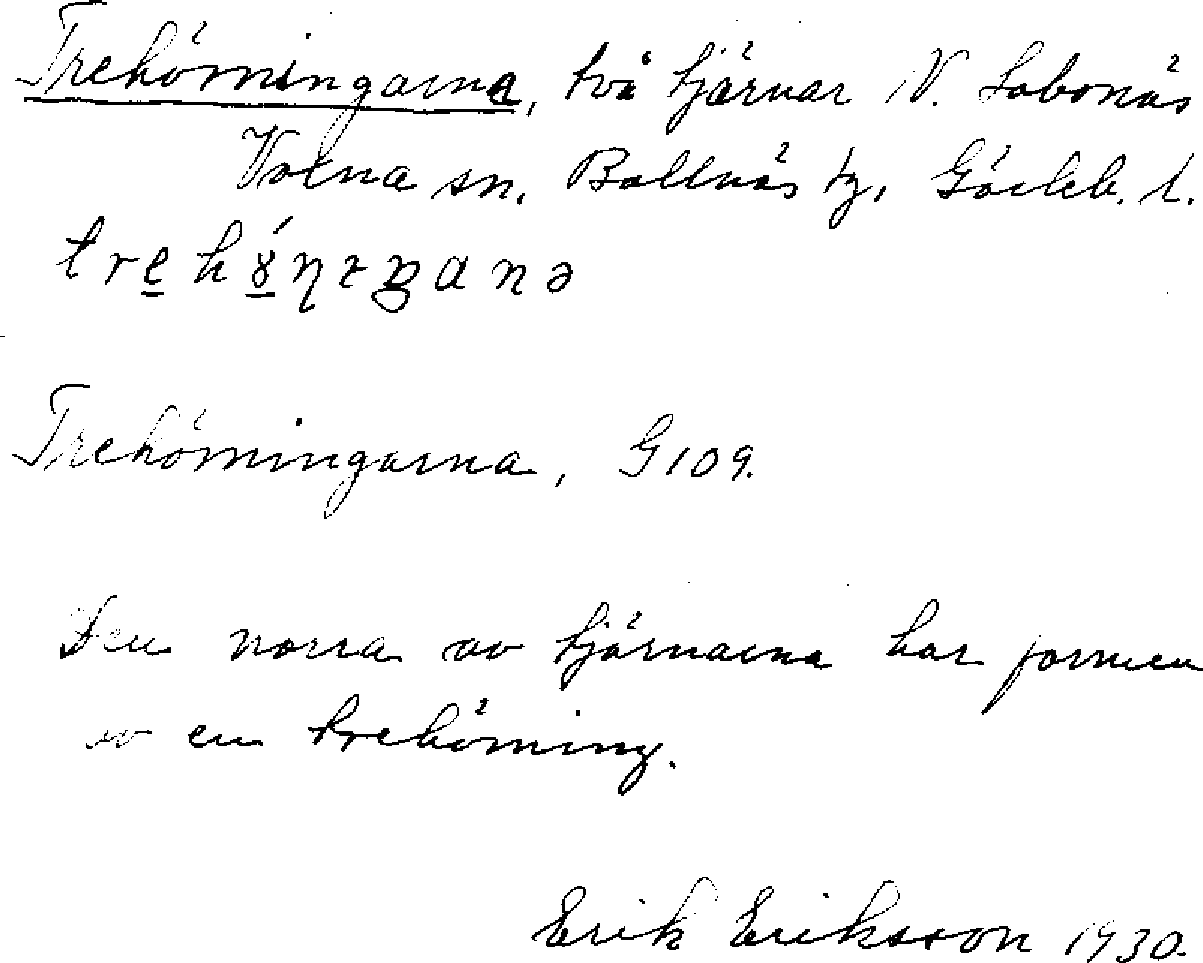 Trehörningarna, två tjärnar N. Lobonäs
Voxna sn. Bollnäs tg. Gävleb. l.
Trehörningarna, G 109.
Den norra av tjärnarna har formen
av en trehörning.
Erik Eriksson 1930.